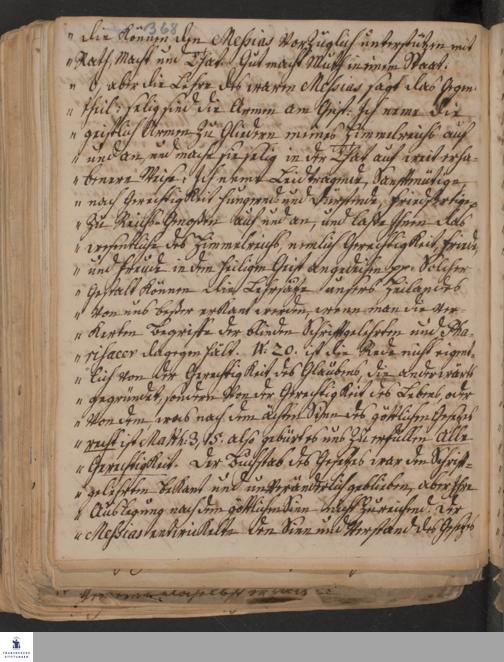 368
" die können den Messias vorzüglich unterstützen mit
" Rath, Macht und That. Gut macht Muth in einem Staat.
" O, aber die Lehre des waren Messias sagt das Gegen-
" theil: selig sind die Armen am Geist: Ich neme die
" geistlich Armen zu Gliedern meines Himmelreichs auf
" und an, und mache sie selig in der That auf weit erha-
" benere Weise: Ich neme Leidtragende, Sanftmütige,
" nach Gerechtigkeit hungernd und dürstende, Friedfertige
" zu Reichs-Genossen auf und an, und lasse ihnen das
" wesentliche des Himmelreichs, nemlich Gerechtigkeit, Friede
" und Freude in dem heiligen Geist angedeihen pp. Solcher
" Gestalt können die Lehrsäze unsers Heilandes
" von uns besser erkant werden, wenn man die ver-
" kerten Begriffe der blinden Schriftgelehrten und Pha-
" risaeer dagegen hält. V. 20. ist die Rede nicht eigent-
" lich von der Gerechtigkeit des Glaubens, die anderwärts
" gegründet, sondern von der Gerechtigkeit des Lebens, oder
" von dem was nach dem ächten Sinn des göttlichen Gesezes
" recht ist Matth. 3, 15: also gebürt es uns zu erfüllen Alle
" Gerechtigkeit. Der Buchstab des Gesetzes war den Schrift-
" gelehrten bekant und unveränderlich geblieben, aber ihre
" Auslegung nach dem göttlichen Sinn nicht zureichend. Der
" Messias entwickelte den Sinn und Verstand des Gesezes
FRANCKESCHE
STIFTUNGEN